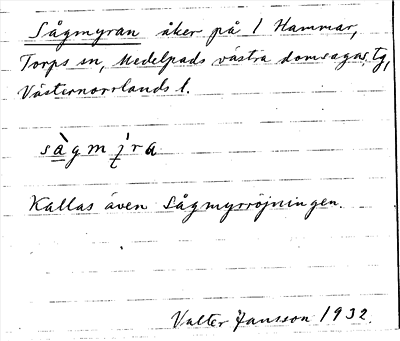 Sågmyran åker på 1 Hammar,
Torps sn, Medelpads västra domsagas tg,
Västernorrlands l.
Kallas även Sågmyrröjningen.
Valter Jansson 1932.